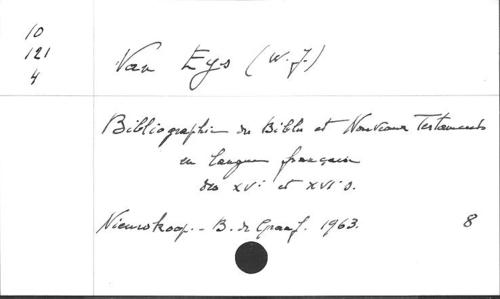 10
121
4
Van Eys (W.J.)
Bibliographie des Bibles et Nouveaux Testaments
en langue française
des XVe et XVIe s.
Nieuwkoop. - B. de Graaf. 1963.
8